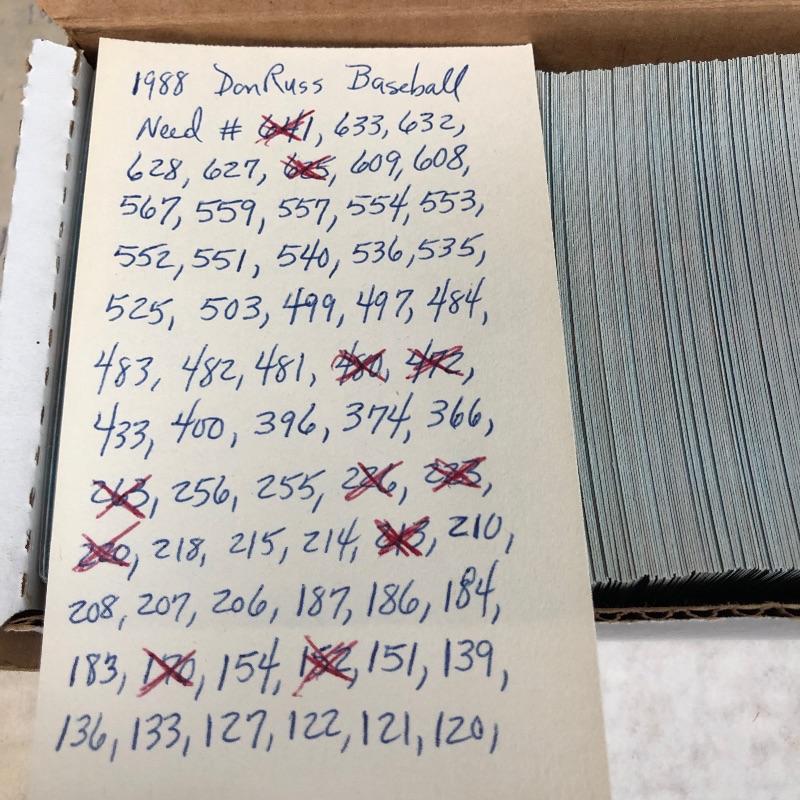 1988 DonRuss Baseball
Need # 641, 633, 632,
628, 627, 625, 609, 608,
567, 559, 557, 554, 553,
552, 551, 540, 536, 535,
525, 503, 499, 497, 484,
483, 482, 481, 480, 472,
433, 400, 396, 374, 366,
263, 256, 255, 226, 223,
220, 218, 215, 214, 213, 210,
208, 207, 206, 187, 186, 184,
183, 170, 154, 152, 151, 139,
136, 133, 127, 122, 121, 120,